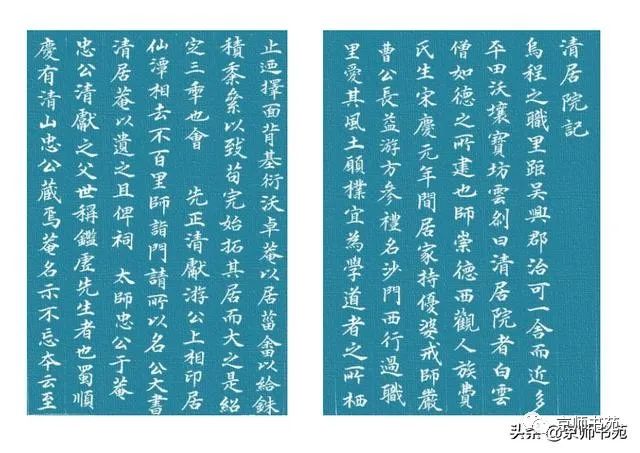 清居院記
烏程之職里距吳興郡治可一舍而近多
平田沃壤寶坊雲剏曰清居院者白雲
僧如德之所建也師崇德西觀人族費
氏生宋慶元年間居家持優婆戒師嚴
曹公長益游方參禮名沙門西行過職
里愛其風土願樸宜為學道者之所栖
止迺擇面背基衍沃卓菴以居菑畬以給銖
積黍絫以致苟完始拓其居而大之是紹
定三秊也會 先正清獻游公上相印居
仙潭相去不百里師詣門請所以名公大書
清居菴以遺之且俾祠 太師忠公于菴
忠公清獻之父世稱鑑虛先生者也蜀順
慶有清山忠公蔵焉菴名示不忘夲云至
京师书苑
头条@京师书苑